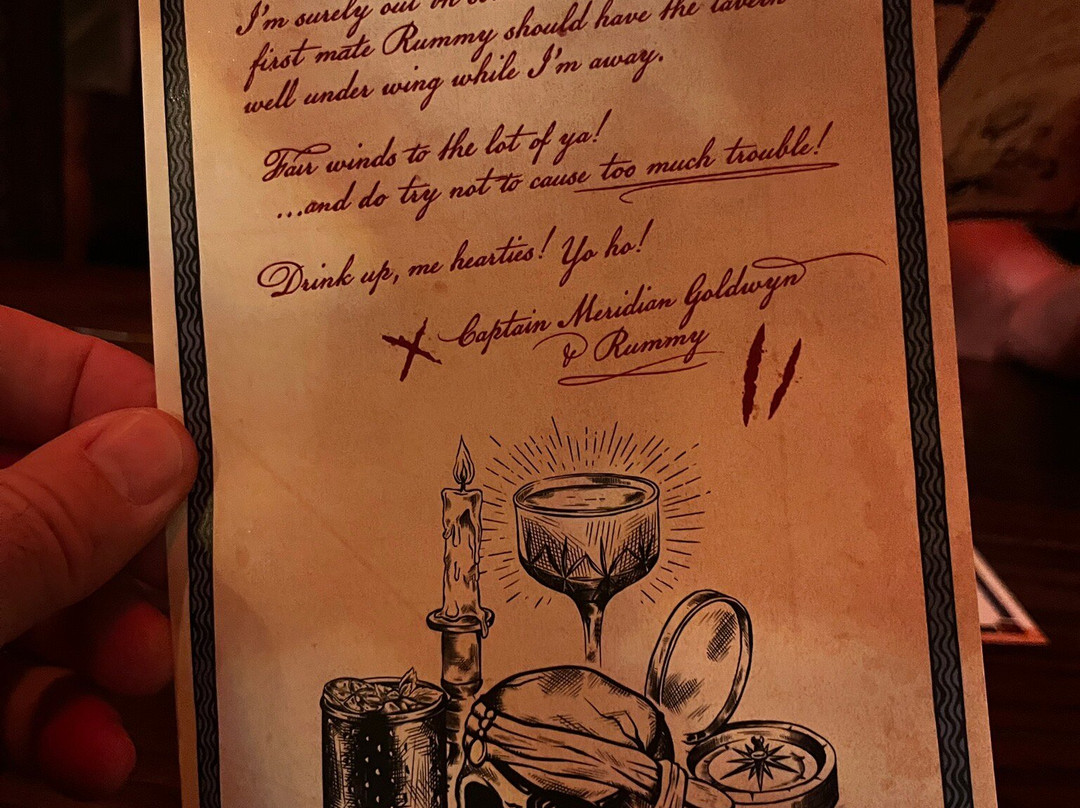 I'm surely out on
first mate Rummy should have the tavern
well under wing while I'm away.
Fair winds to the lot of ya!
...and do try not to cause too much trouble!
Drink up, me hearties! Yo ho!
X Captain Meridian Goldwyn
& Rummy